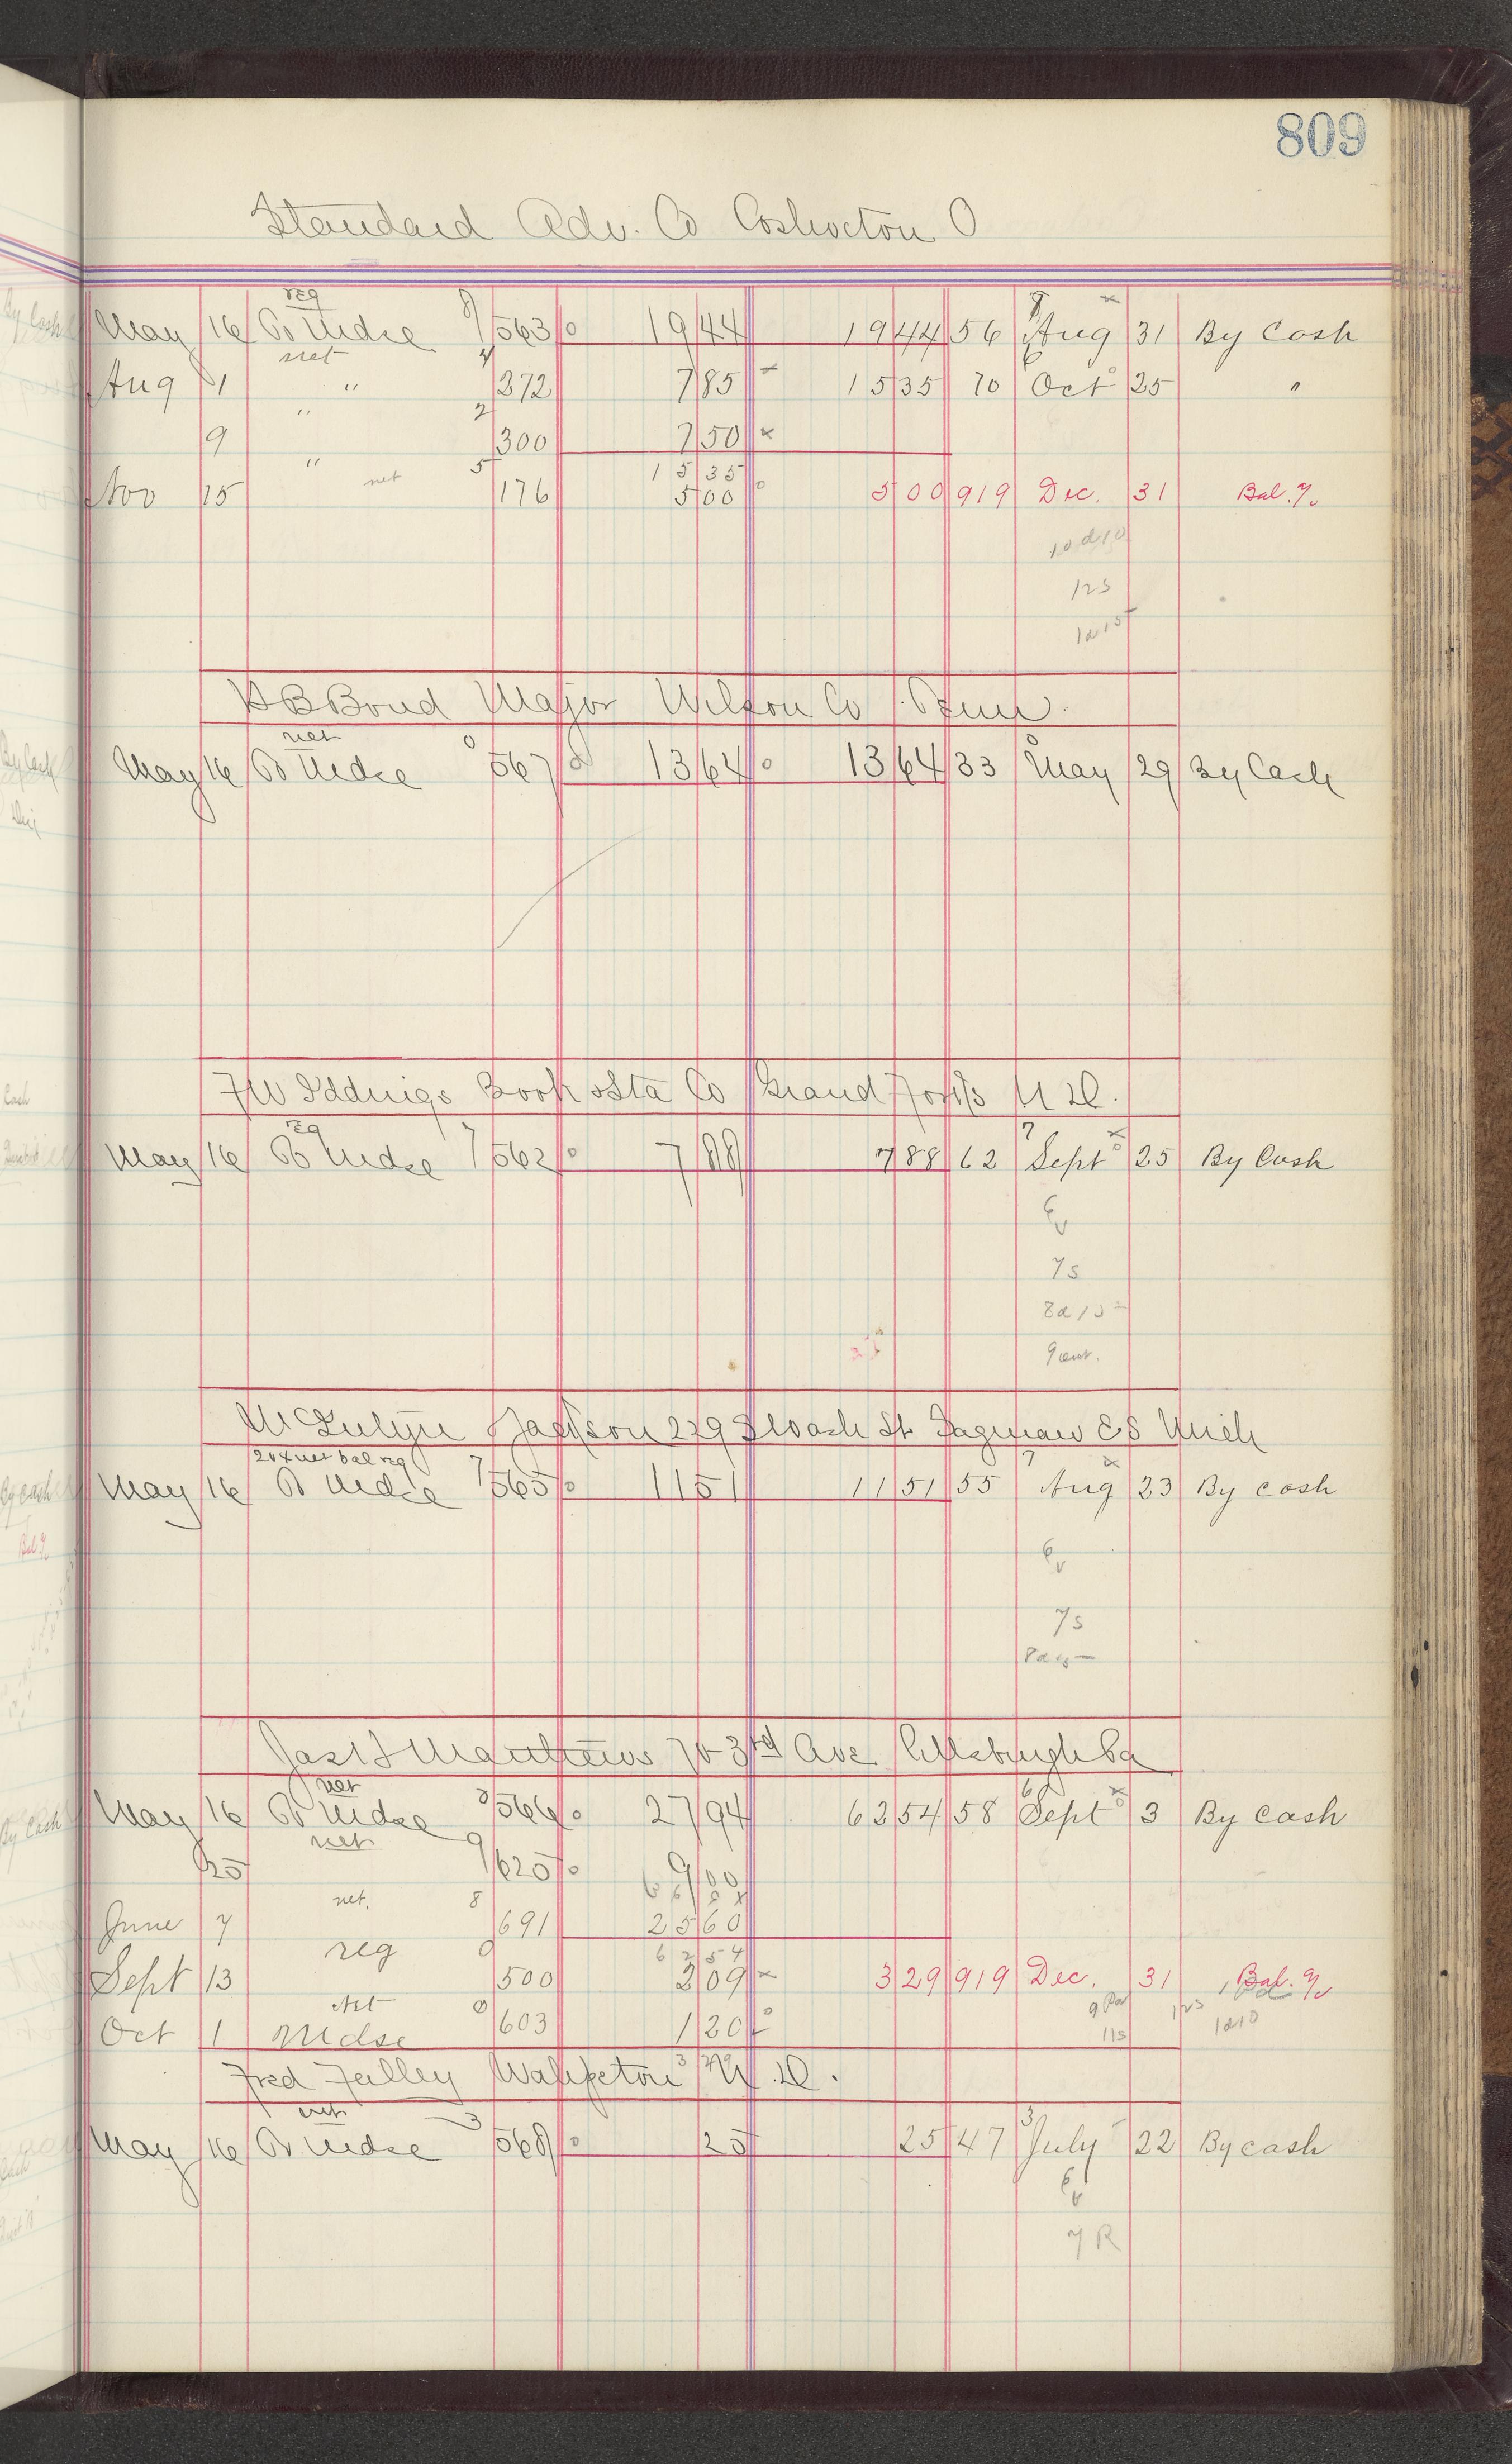 809
Standard Adv. Co Coshocton O
reg
May 16 To Mdse 8 563 19 44 19 44 56 Aug 31 By Cash
net
Aug 1 " 4 372 7 85 15 35 70 Oct 25 "
9 " 2 300 7 50
15 35
Nov 15 " net 5 176 5 00 5 00 919 Dec. 31 Bal.
10d10
12s
1d15
H B Bond Major Wilson Co Tenn.
net
May 16 To Mdse 0 567 13 64 13 64 33 May 29 By Cash
F W Iddings Book & Sta Co Grand Forks N D.
reg
May 16 To Mdse 7 562 7 88 7 88 62 Sept 25 By Cash
6v
7s
8d15
Jackson 229 S Wash St. Saginaw E S Mich
204 net bal reg
May 16 To Mdse 7 565 11 51 11 51 55 Aug 23 By Cash
6v
7s
Jas Matthews 70 3rd Ave Pittsburgh Pa
net
May 16 To Mdse 3 566 27 94 62 54 58 Sept 3 By Cash
net
25 9 625 9 00
net.
June 7 8 691 25 60
reg 62 54
Sept 13 0 500 2 09 3 29 919 Dec. 31 Bal.
net
Oct 1 Mdse 0 603 1 20
11s 1d10
3 29
Fred Falley Wahpeton N. D.
net
May 16 To Mdse 3 568 25 25 47 July 22 By Cash
6v
7R